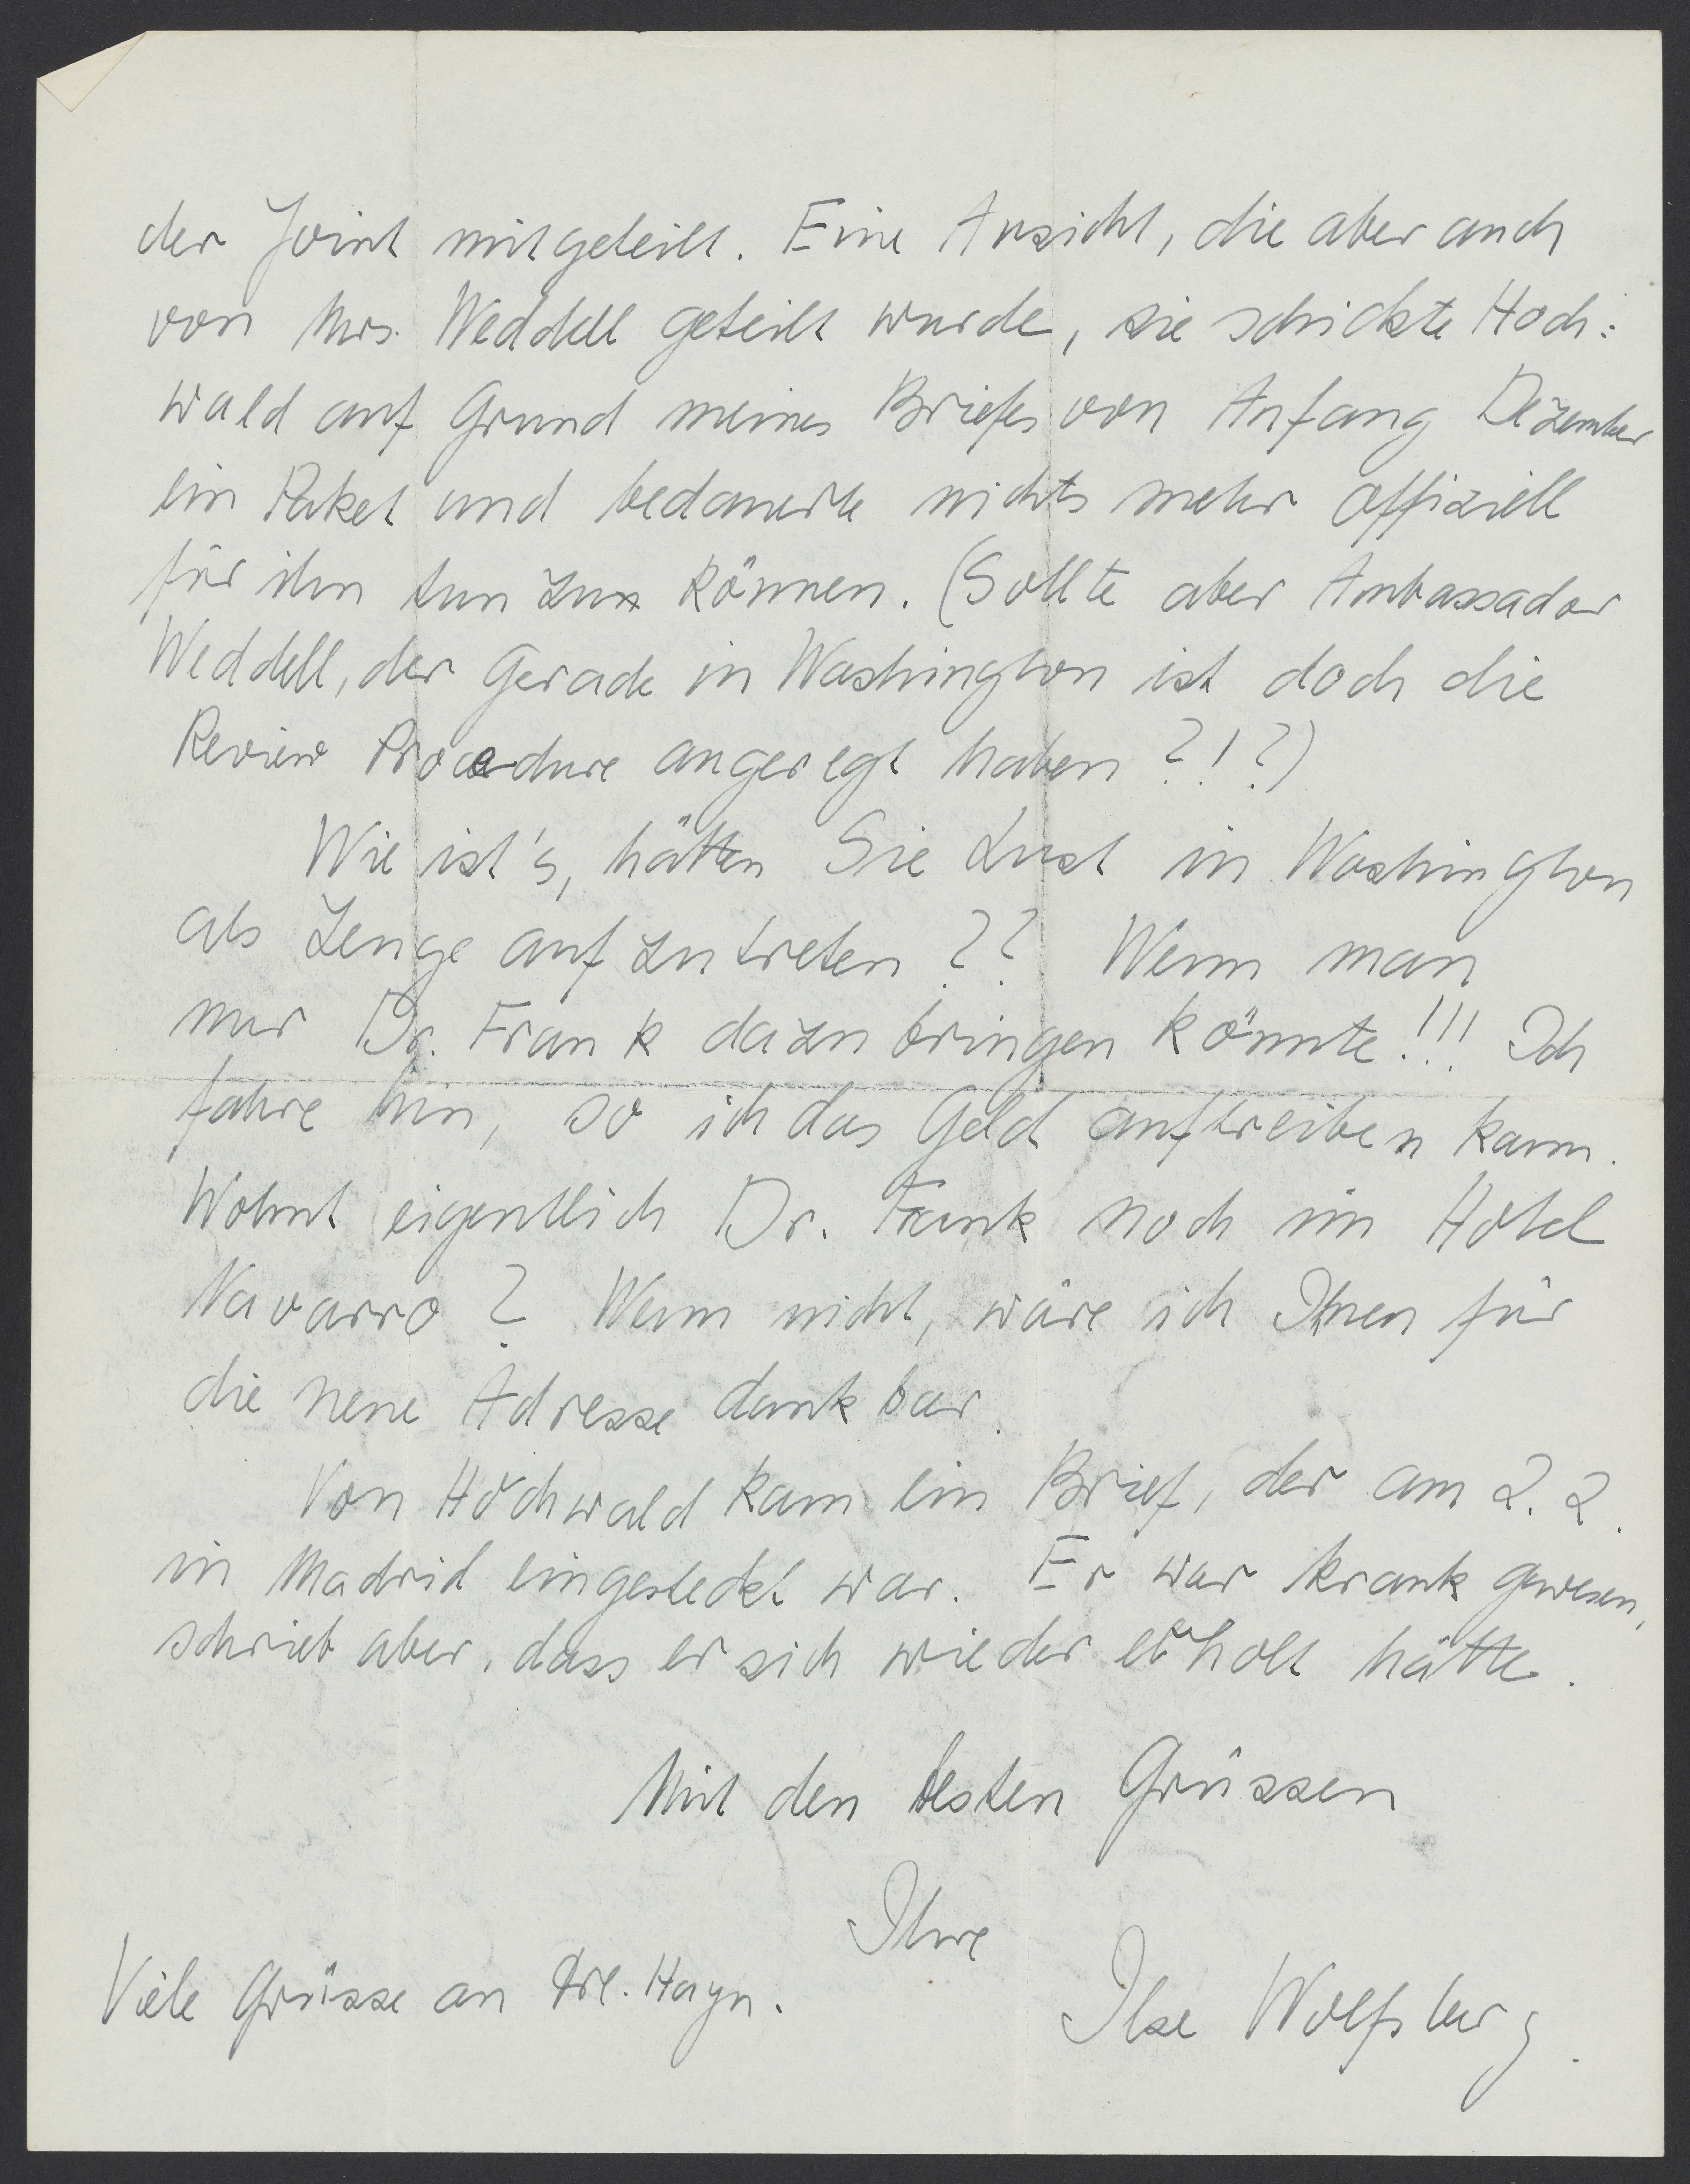 der Joint mitgeteilt. Eine Ansicht, die aber auch
von Mrs. Weddell geteilt wurde, sie schickte Hoch:
wald auf Grund meines Briefes von Anfang Dezember
ein Paket und bedauerte nichts mehr offiziell
für ihn tun zu können. (Sollte aber Ambassador
Weddell, der gerade in Washington ist doch die
Review Procedure angeregt haben ?!?)
Wie ist's, hätten Sie Lust in Washington
als Zeuge aufzutreten ?? Wenn man
nur Dr. Frank dazu bringen könnte!!! Ich
fahre hin, so ich das Geld auftreiben kann.
Wohnt eigentlich Dr. Frank noch im Hotel
Navarro ? Wenn nicht, wäre ich Ihnen für
die neue Adresse dankbar.
Von Hochwald kam ein Brief, der am 2.2.
in Madrid eingesteckt war. Er war krank gewesen,
schrieb aber, dass er sich wieder erholt hätte.
Mit den besten Grüssen
Ihre
Ilse Wolfsberg.
Viele Grüsse an Frl. Hayn.